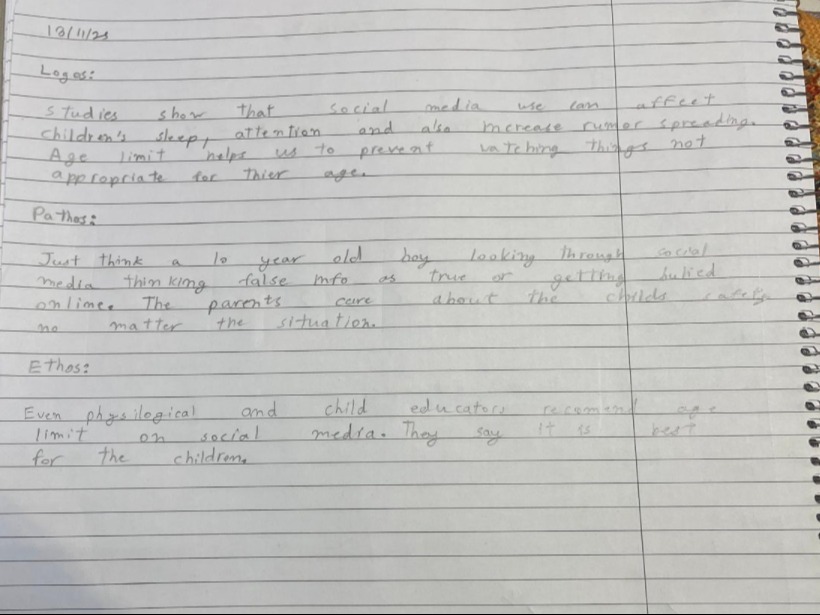 13/11/25
Logos:
Studies show that social media use can affect
children's sleep, attention and also increase rumor spreading.
Age limit helps us to prevent watching things not
appropriate for thier age.
Pathos:
Just think a 10 year old boy looking through social
media thinking false info as true or getting bulied
online. The parents care about the childs safety
no matter the situation.
Ethos:
Even physilogical and child educators recomend age
limit on social media. They say it is best
for the children.